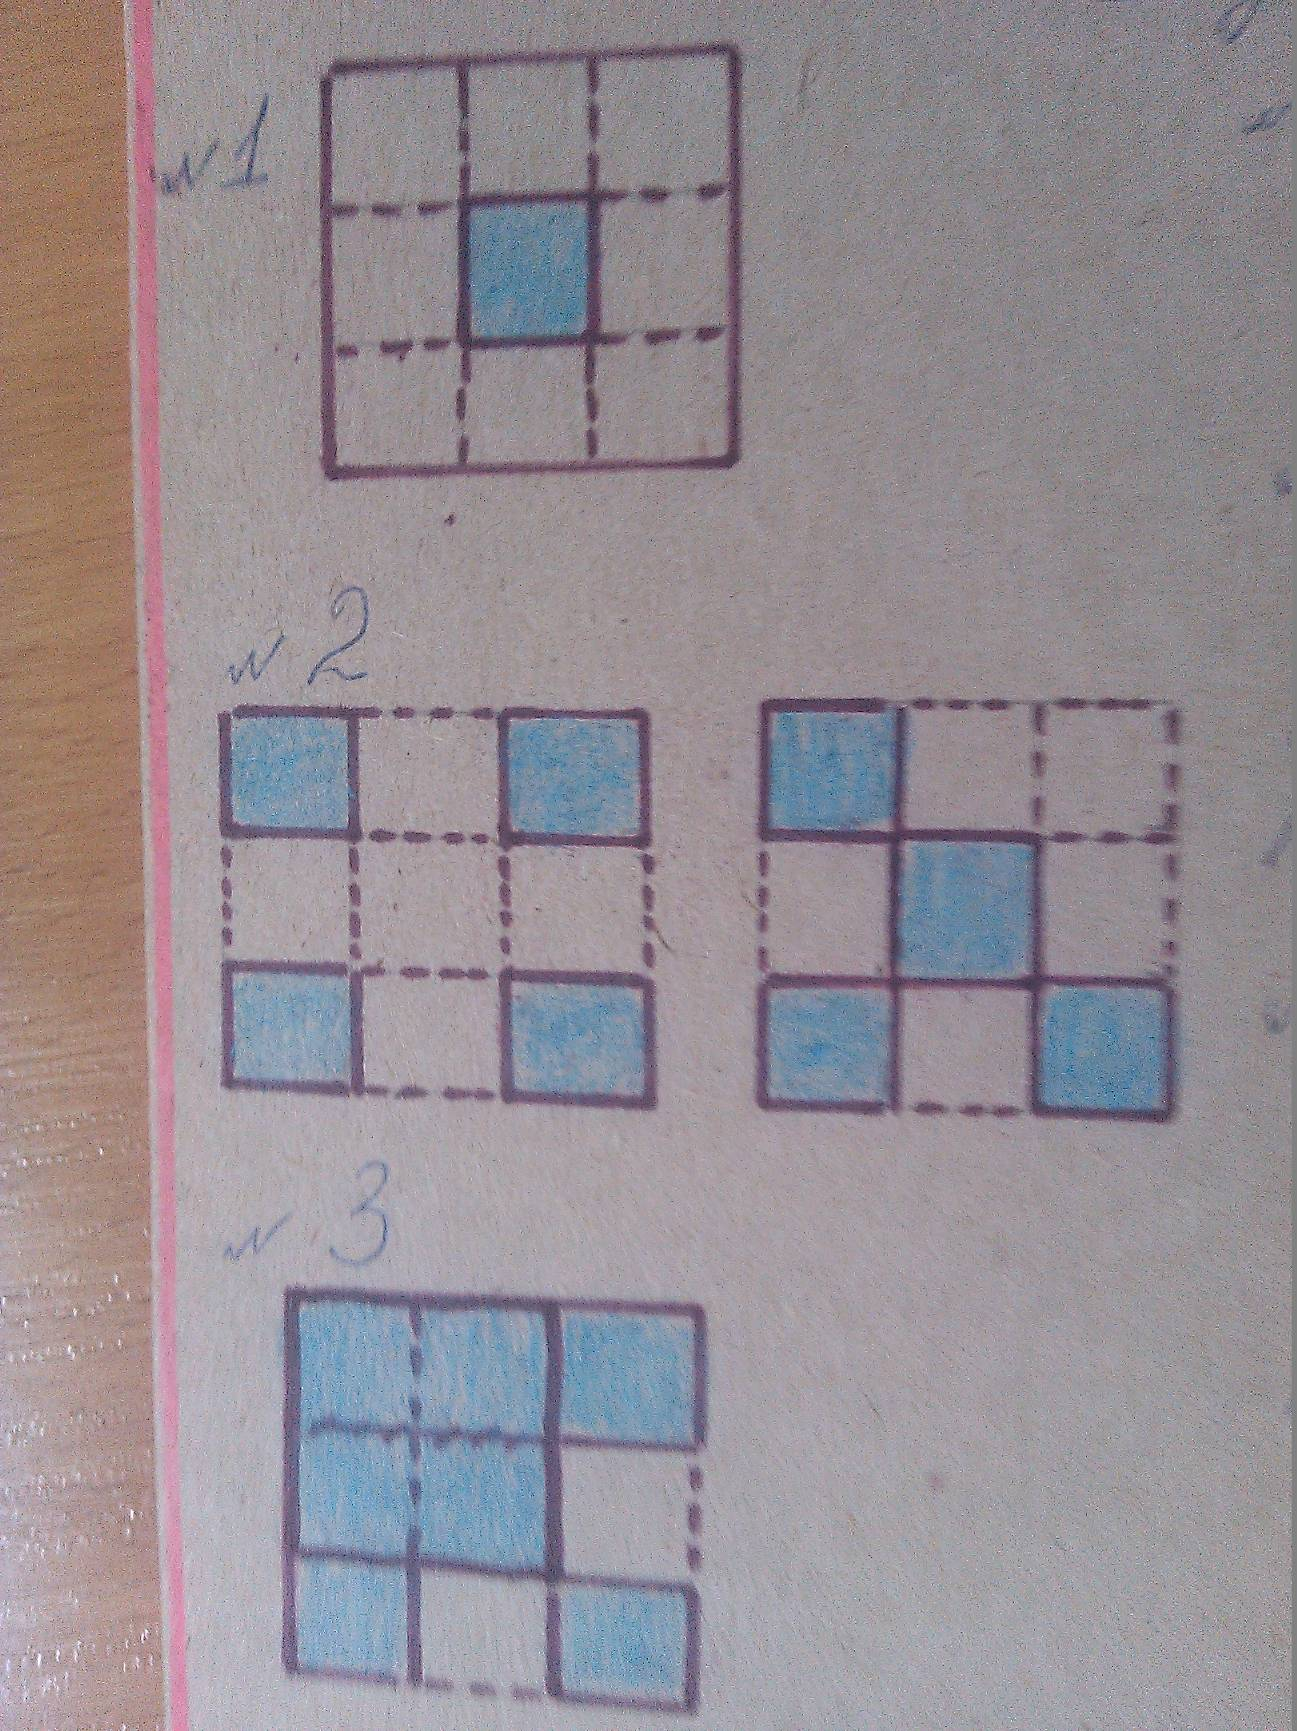 №1
№2
№3